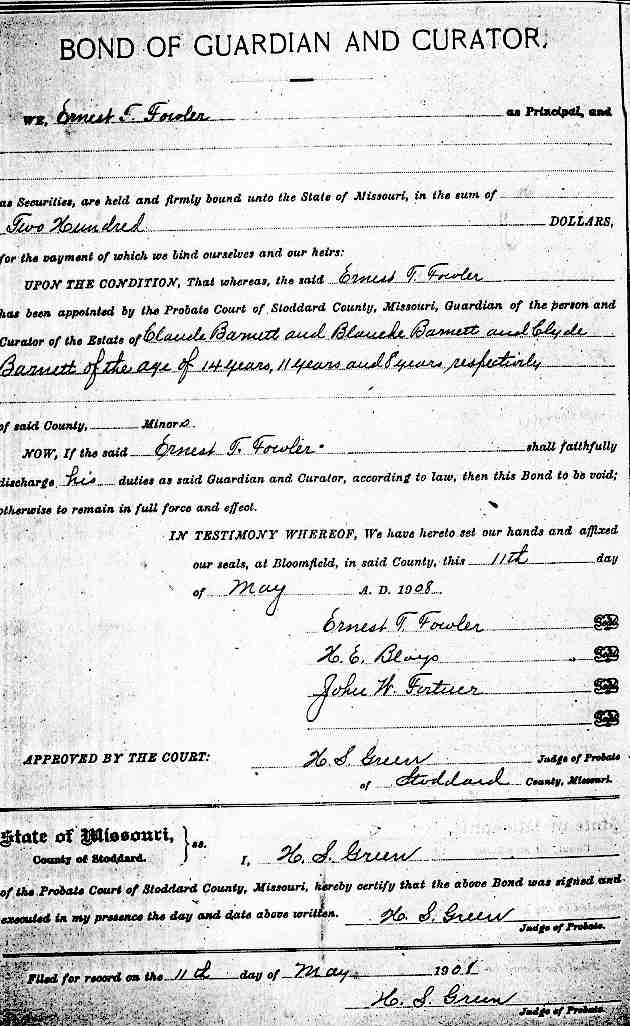 BOND OF GUARDIAN AND CURATOR.
WE, Ernest T. Fowler as Principal, and
as Securities, are held and firmly bound unto the State of Missouri, in the sum of
Two Hundred DOLLARS,
for the payment of which we bind ourselves and our heirs:
UPON THE CONDITION, That whereas, the said Ernest T. Fowler
has been appointed by the Probate Court of Stoddard County, Missouri, Guardian of the person and
Curator of the Estate of Claude Barnett and Blanche Barnett and Clyde
Barnett of the age of 14 years, 11 years and 8 years respectively
of said County, Minors.
NOW, If the said Ernest T. Fowler shall faithfully
discharge his duties as said Guardian and Curator, according to law, then this Bond to be void;
otherwise to remain in full force and effect.
IN TESTIMONY WHEREOF, We have hereto set our hands and affixed
our seals, at Bloomfield, in said County, this 11th day
of May A. D. 1908.
Ernest T. Fowler Seal
H. E. Bloys Seal
John W. Fortner Seal
Seal
APPROVED BY THE COURT: H. S. Green Judge of Probate
of Stoddard County, Missouri.
State of Missouri, } ss.
County of Stoddard.
I, H. S. Green
of the Probate Court of Stoddard County, Missouri, hereby certify that the above Bond was signed and
executed in my presence the day and date above written. H. S. Green
Judge of Probate.
Filed for record on the 11th day of May 1908
H. S. Green
Judge of Probate.